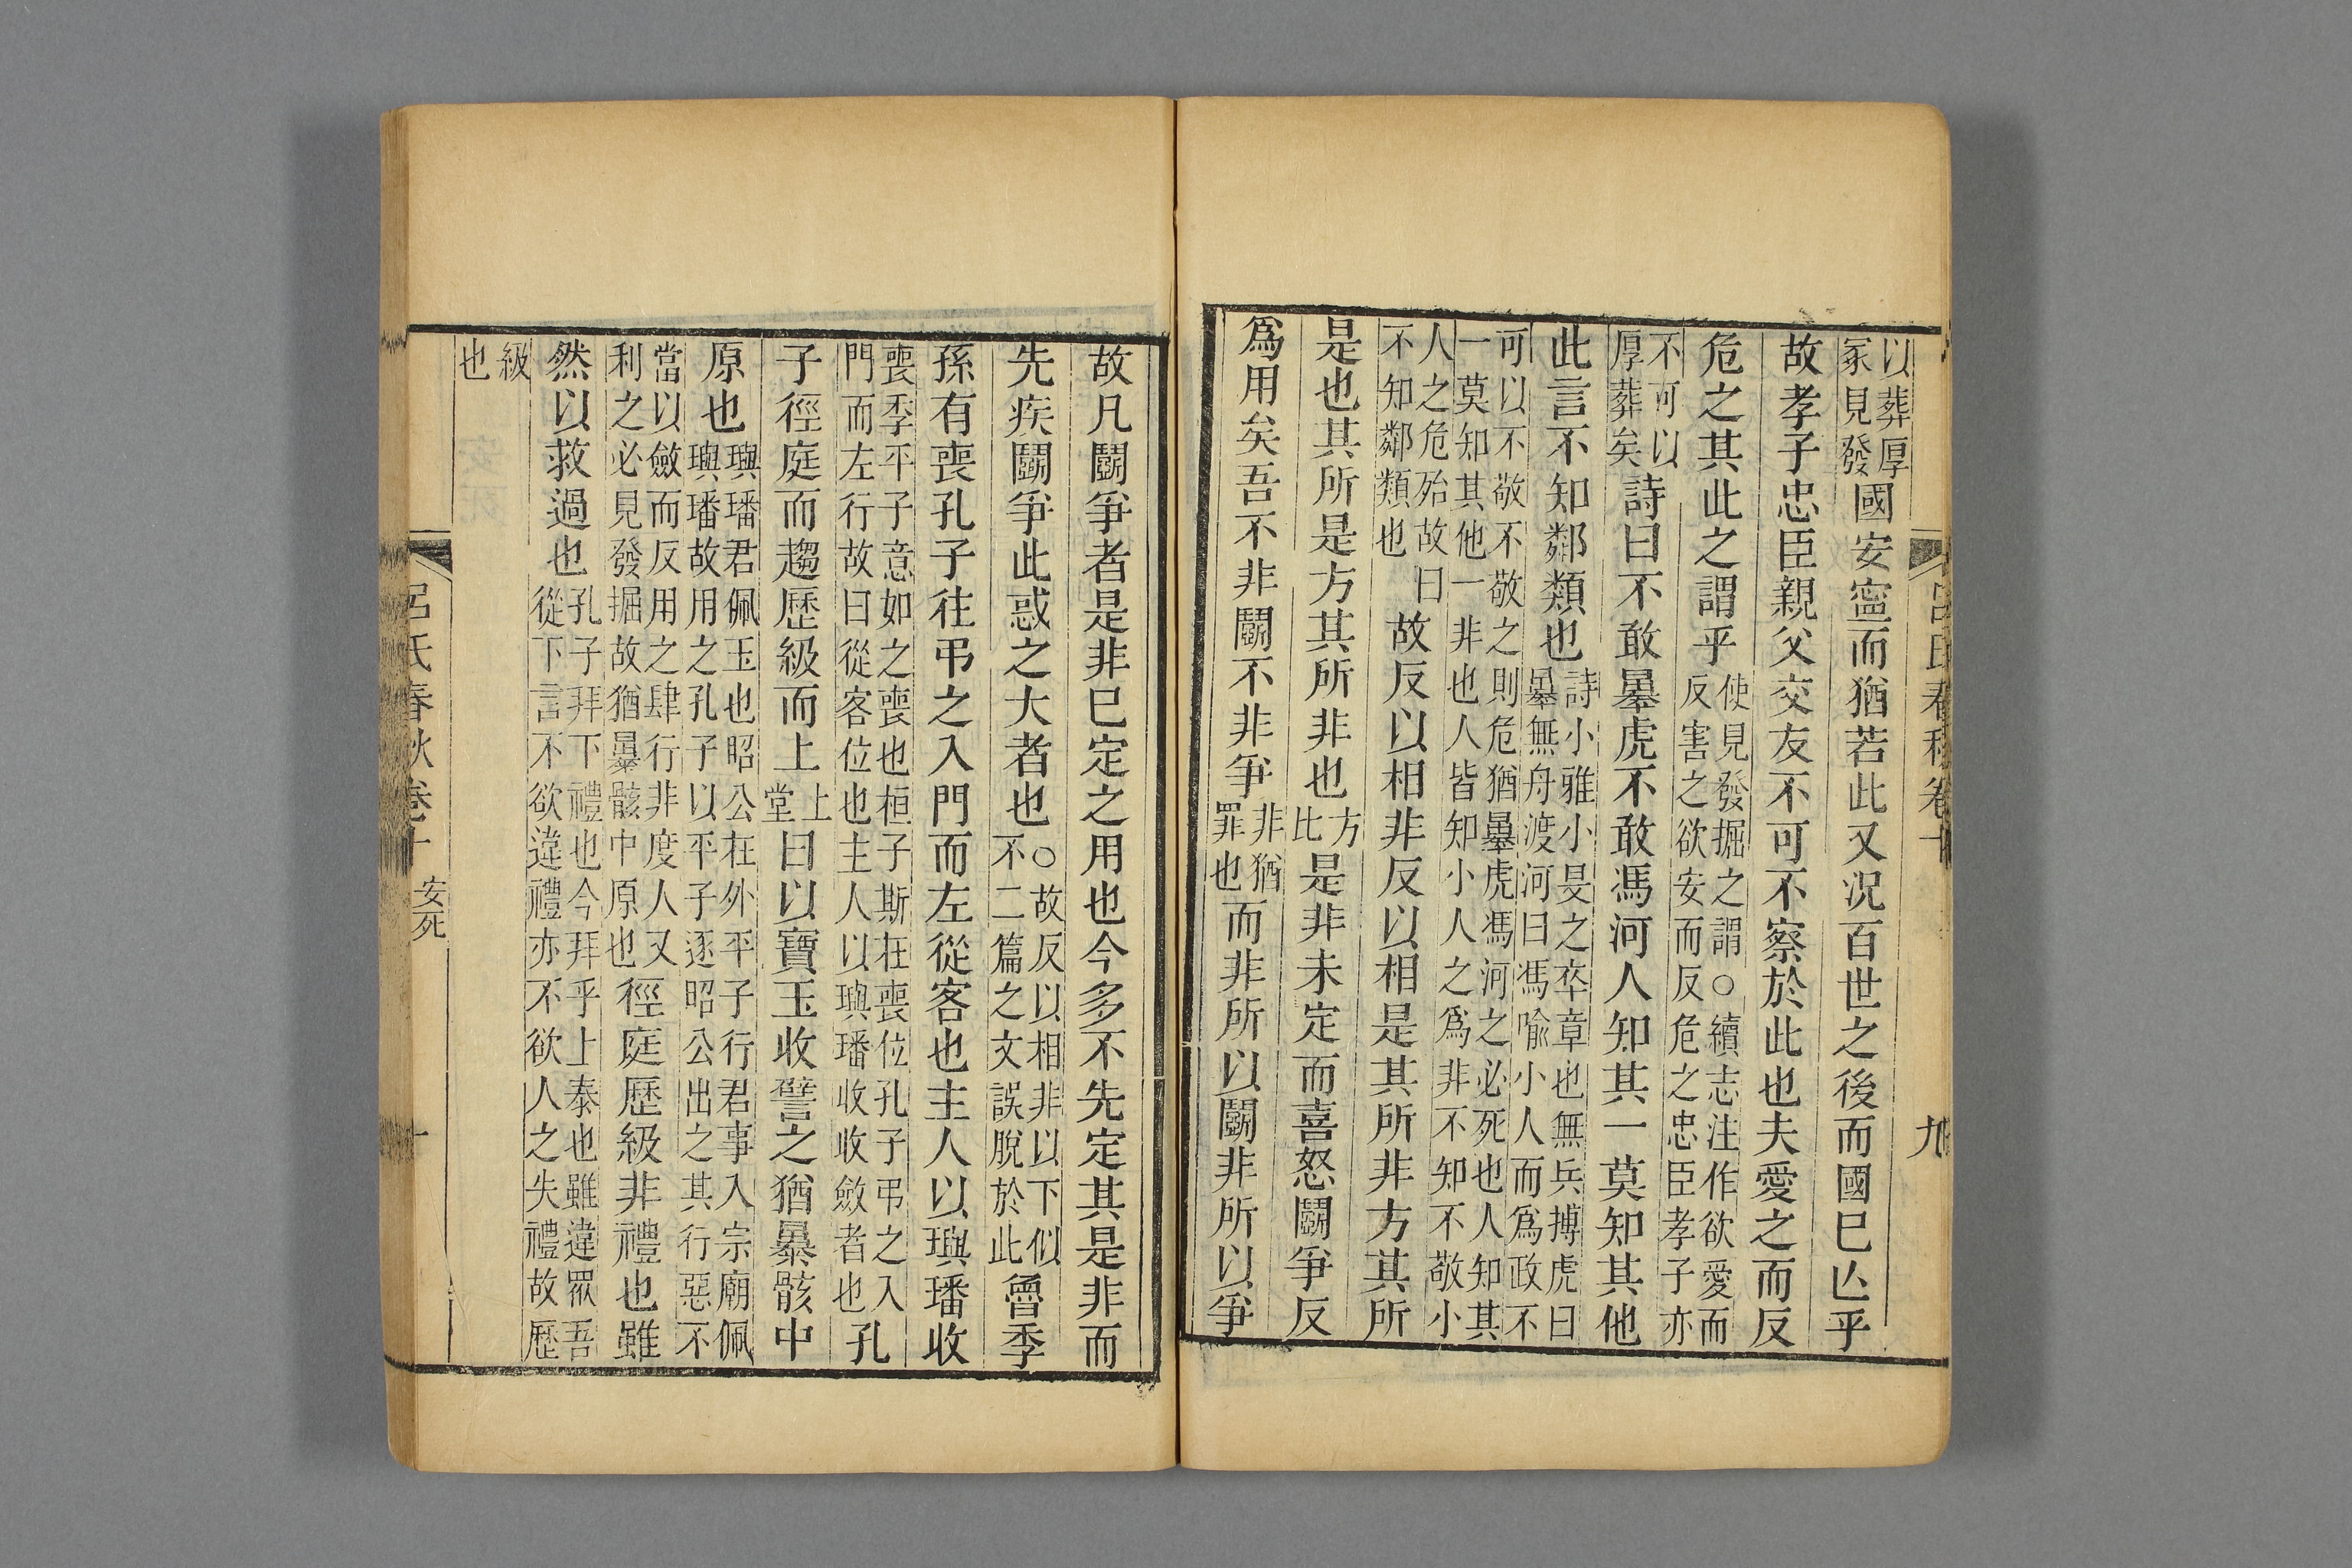 呂氏春秋卷十　九
以葬厚冢見發國安寧而猶若此又况百世之後而國巳亾乎
故孝子忠臣親父交友不可不察於此也夫愛之而反
危之其此之謂乎使見發掘之謂○續志注作欲愛而反害之欲安而反危之忠臣孝子亦
不可以厚葬矣詩曰不敢暴虎不敢馮河人知其一莫知其他
此言不知鄰類也詩小雅小旻之卒章也無兵搏虎曰暴無舟渡河曰馮喻小人而爲政不
可以不敬不敬之則危猶暴虎馮河之必死也人知其一莫知其他一非也人皆知小人之爲非不知不敬小
人之危殆故曰不知鄰類也故反以相非反以相是其所非方其所
是也其所是方其所非也方比是非未定而喜怒鬭爭反
爲用矣吾不非鬭不非爭非猶罪也而非所以鬭非所以爭
故凡鬭爭者是非巳定之用也今多不先定其是非而
先疾鬭爭此惑之大者也○故反以相非以下似不二篇之文誤脫於此魯季
孫有喪孔子往弔之入門而左從客也主人以璵璠收
喪季平子意如之喪也桓子斯在喪位孔子弔之入門而左行故曰從客位也主人以璵璠收收斂者也孔
子徑庭而趨歷級而上上堂曰以寶玉收譬之猶暴骸中
原也璵璠君佩玉也昭公在外平子行君事入宗廟佩璵璠故用之孔子以平子逐昭公出之其行惡不
當以斂而反用之肆行非度人又利之必見發掘故猶暴骸中原也徑庭歷級非禮也雖
然以救過也孔子拜下禮也今拜乎上泰也雖違眾吾從下言不欲違禮亦不欲人之失禮故歷
級也
呂氏春秋卷十　安死　十